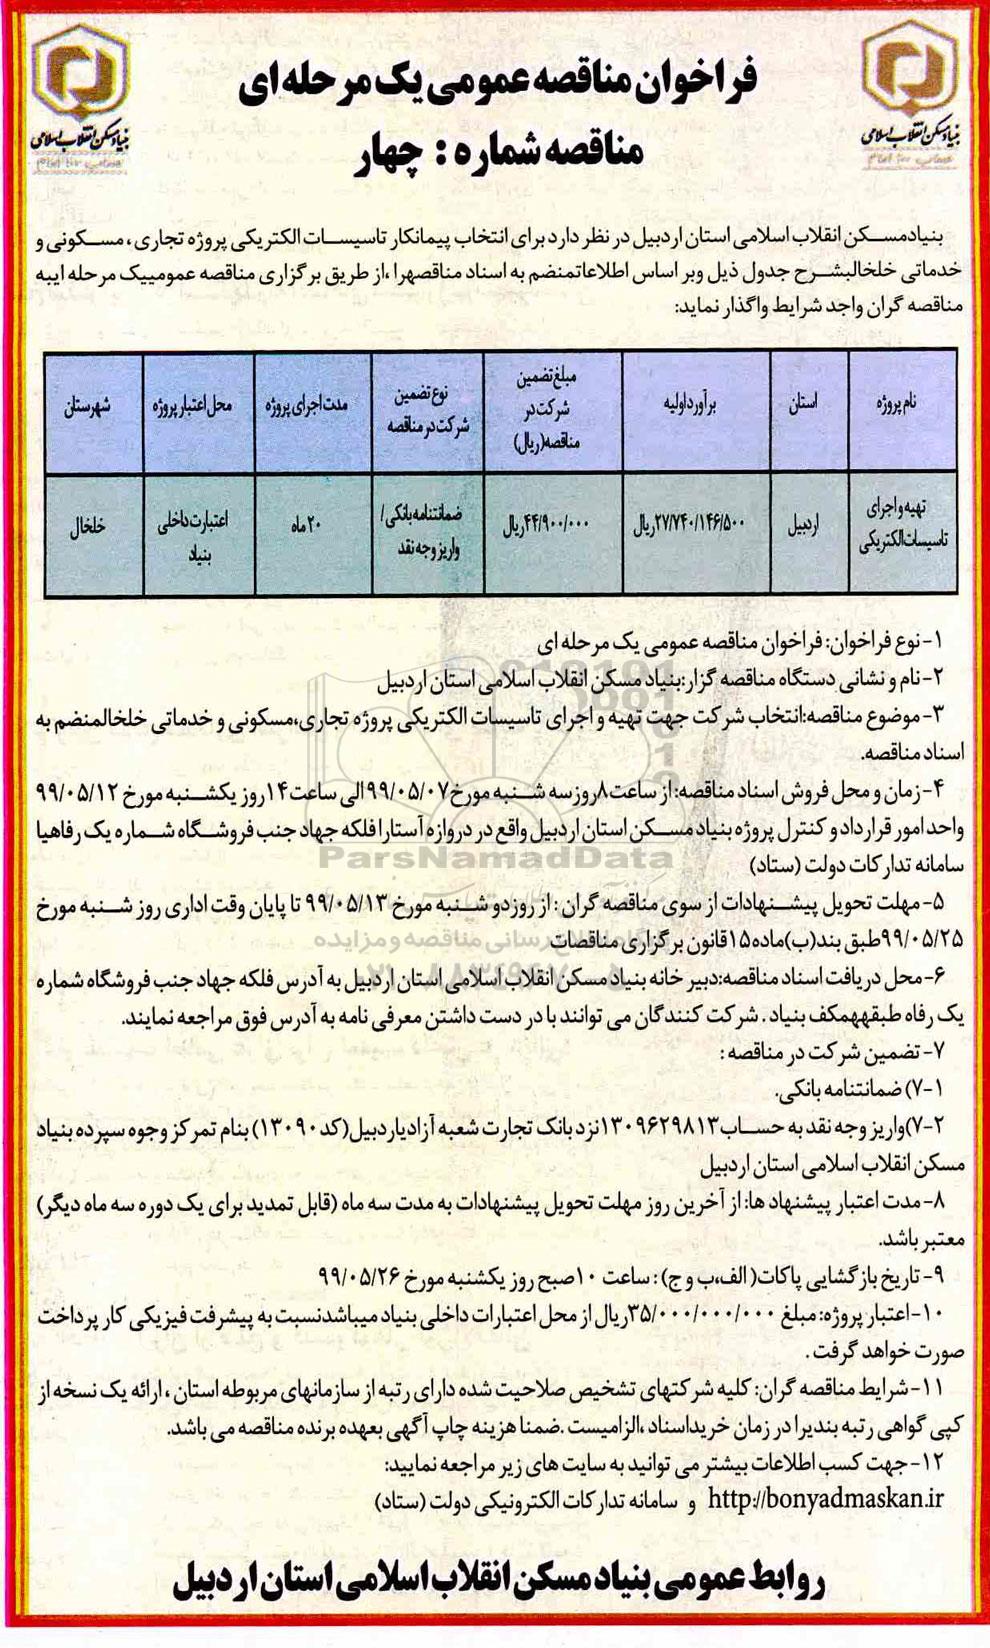 فراخوان مناقصه عمومی یک مرحله ای
مناقصه شماره : چهار
بنیاد مسکن انقلاب اسلامی
بنیاد مسکن انقلاب اسلامی
بنیادمسکن انقلاب اسلامی استان اردبیل در نظر دارد برای انتخاب پیمانکار تاسیسات الکتریکی پروژه تجاری، مسکونی و
خدماتی خلخالبشرح جدول ذیل وبر اساس اطلاعاتمنضم به اسناد مناقصهرا ،از طریق برگزاری مناقصه عمومییک مرحله ایبه
مناقصه گران واجد شرایط واگذار نماید:
نام پروژه	استان	برآورد اولیه	مبلغ تضمین شرکت در مناقصه(ریال)	نوع تضمین شرکت در مناقصه	مدت اجرای پروژه	محل اعتبار پروژه	شهرستان
تهیه و اجرای تاسیسات الکتریکی	اردبیل	۲۷/۷۴۰/۱۴۶/۵۰۰ریال	۴۴/۹۰۰/۰۰۰ریال	ضمانتنامه بانکی/ واریز وجه نقد	۲۰ ماه	اعتبارت داخلی بنیاد	خلخال
۱-نوع فراخوان: فراخوان مناقصه عمومی یک مرحله ای
۲-نام و نشانی دستگاه مناقصه گزار:بنیاد مسکن انقلاب اسلامی استان اردبیل
۳-موضوع مناقصه:انتخاب شرکت جهت تهیه و اجرای تاسیسات الکتریکی پروژه تجاری،مسکونی و خدماتی خلخالمنضم به
اسناد مناقصه.
۴-زمان و محل فروش اسناد مناقصه: از ساعت۸روزسه شنبه مورخ۹۹/۰۵/۰۷الی ساعت۱۴روز یکشنبه مورخ ۹۹/۰۵/۱۲
واحد امور قرارداد و کنترل پروژه بنیاد مسکن استان اردبیل واقع در دروازه آستارا فلکه جهاد جنب فروشگاه شماره یک رفاهیا
سامانه تدارکات دولت (ستاد)
۵-مهلت تحویل پیشنهادات از سوی مناقصه گران : از روزدو شنبه مورخ ۹۹/۰۵/۱۳ تا پایان وقت اداری روز شنبه مورخ
۹۹/۰۵/۲۵طبق بند(ب)ماده۱۵قانون برگزاری مناقصات
۶-محل دریافت اسناد مناقصه:دبیر خانه بنیاد مسکن انقلاب اسلامی استان اردبیل به آدرس فلکه جهاد جنب فروشگاه شماره
یک رفاه طبقههمکف بنیاد . شرکت کنندگان می توانند با در دست داشتن معرفی نامه به آدرس فوق مراجعه نمایند.
۷- تضمین شرکت در مناقصه :
۷-۱) ضمانتنامه بانکی.
۷-۲)واریز وجه نقد به حساب۱۳۰۹۶۲۹۸۱۳نزد بانک تجارت شعبه آزادیاردبیل(کد۱۳۰۹۰) بنام تمرکز وجوه سپرده بنیاد
مسکن انقلاب اسلامی استان اردبیل
۸-مدت اعتبار پیشنهاد ها: از آخرین روز مهلت تحویل پیشنهادات به مدت سه ماه (قابل تمدید برای یک دوره سه ماه دیگر)
معتبر باشد.
۹- تاریخ بازگشایی پاکات( الف،ب و ج) : ساعت ۱۰صبح روز یکشنبه مورخ ۹۹/۰۵/۲۶
۱۰-اعتبار پروژه: مبلغ ۳۵/۰۰۰/۰۰۰/۰۰۰ریال از محل اعتبارات داخلی بنیاد میباشدنسبت به پیشرفت فیزیکی کار پرداخت
صورت خواهد گرفت .
۱۱-شرایط مناقصه گران: کلیه شرکتهای تشخیص صلاحیت شده دارای رتبه از سازمانهای مربوطه استان ، ارائه یک نسخه از
کپی گواهی رتبه بندیرا در زمان خریداسناد ،الزامیست .ضمنا هزینه چاپ آگهی بعهده برنده مناقصه می باشد.
۱۲-جهت کسب اطلاعات بیشتر می توانید به سایت های زیر مراجعه نمایید:
http://bonyadmaskan.ir و سامانه تدارکات الکترونیکی دولت (ستاد)
روابط عمومی بنیاد مسکن انقلاب اسلامی استان اردبیل
ParsNamadData